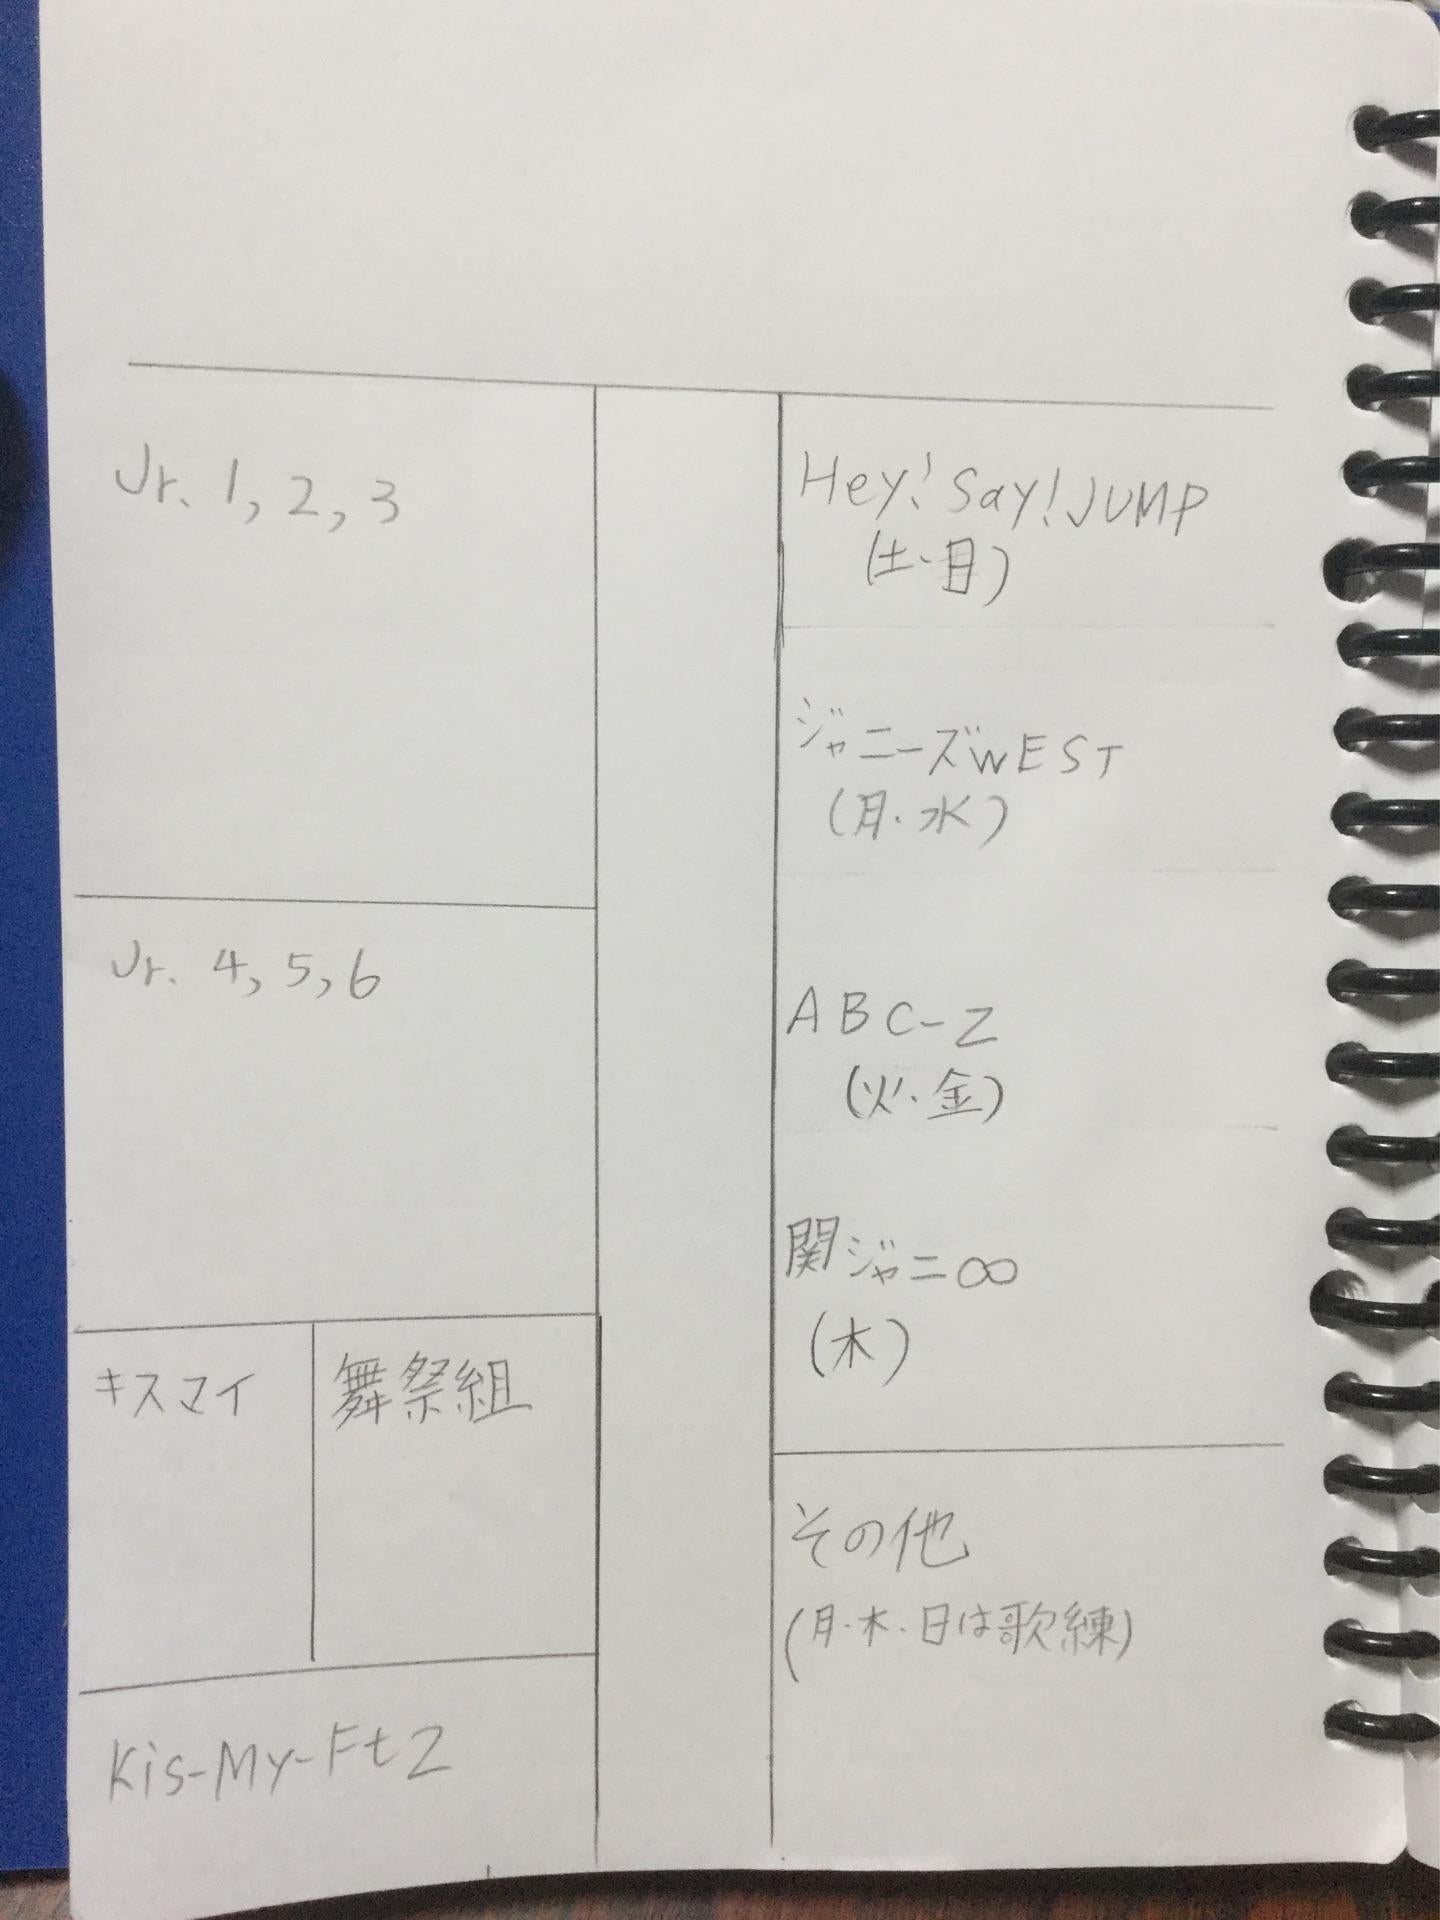 Jr. 1, 2, 3
Jr. 4, 5, 6
キスマイ
舞祭組
Kis-My-Ft2
Hey! Say! JUMP
(土・日)
ジャニーズWEST
(月・水)
ABC-Z
(火・金)
関ジャニ∞
(木)
その他
(月・木・日は歌練)